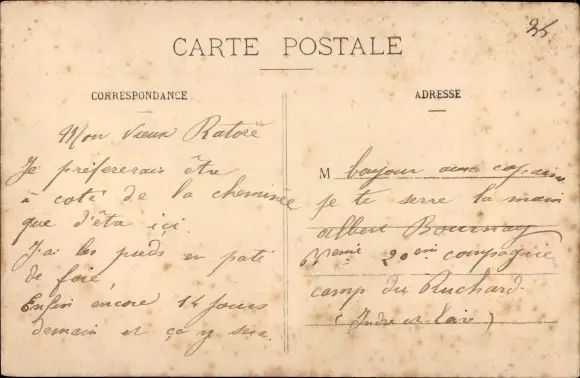 25
CARTE POSTALE
CORRESPONDANCE
ADRESSE
Mon vieux Ratoré
Je préfererais être
à coté de la cheminée
que d'êta içi.
J'ai les pieds en paté
de foie,
Enfin encore 14 jours
demain et ça y sera.
M bonjour aux copains
je te serre la main
albert Bournay
20em compagnie
camp du Ruchard.
(Indre et Loire)